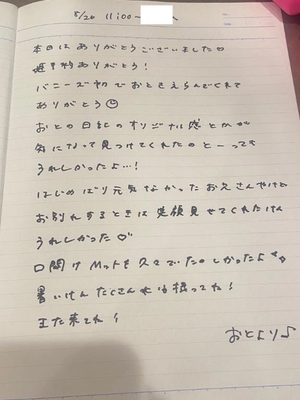 5/20 11:00〜
本日はありがとうございました♡
遅予約ありがとう!
バニーズ初でおとさえらんでくれて
ありがとう☺
おとの日記のオリジナル感とかが
気になって見つけてくれたのとーっても
うれしかったよ…!
はじめばり元気なかったおえさんやけど
お別れするときは笑顔見せてくれたけん
うれしかった♡
口開けMットを久々でたのしかったよ
暑いけんたくさん水分摂ってね!
また来てね!
おとより♪